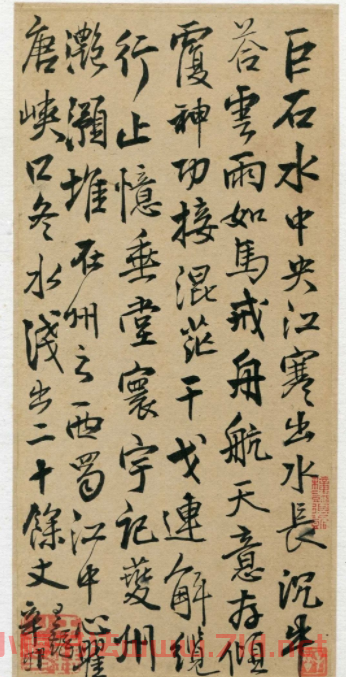 巨石水中央江寒出水長沉牛
荅雲雨如馬戒舟航天意存傾
覆神功接混茫干戈連解纜
行止憶垂堂寰宇記夔州
灔澦堆在州之西蜀江中心瞿
唐峽口冬水淺出二十餘丈